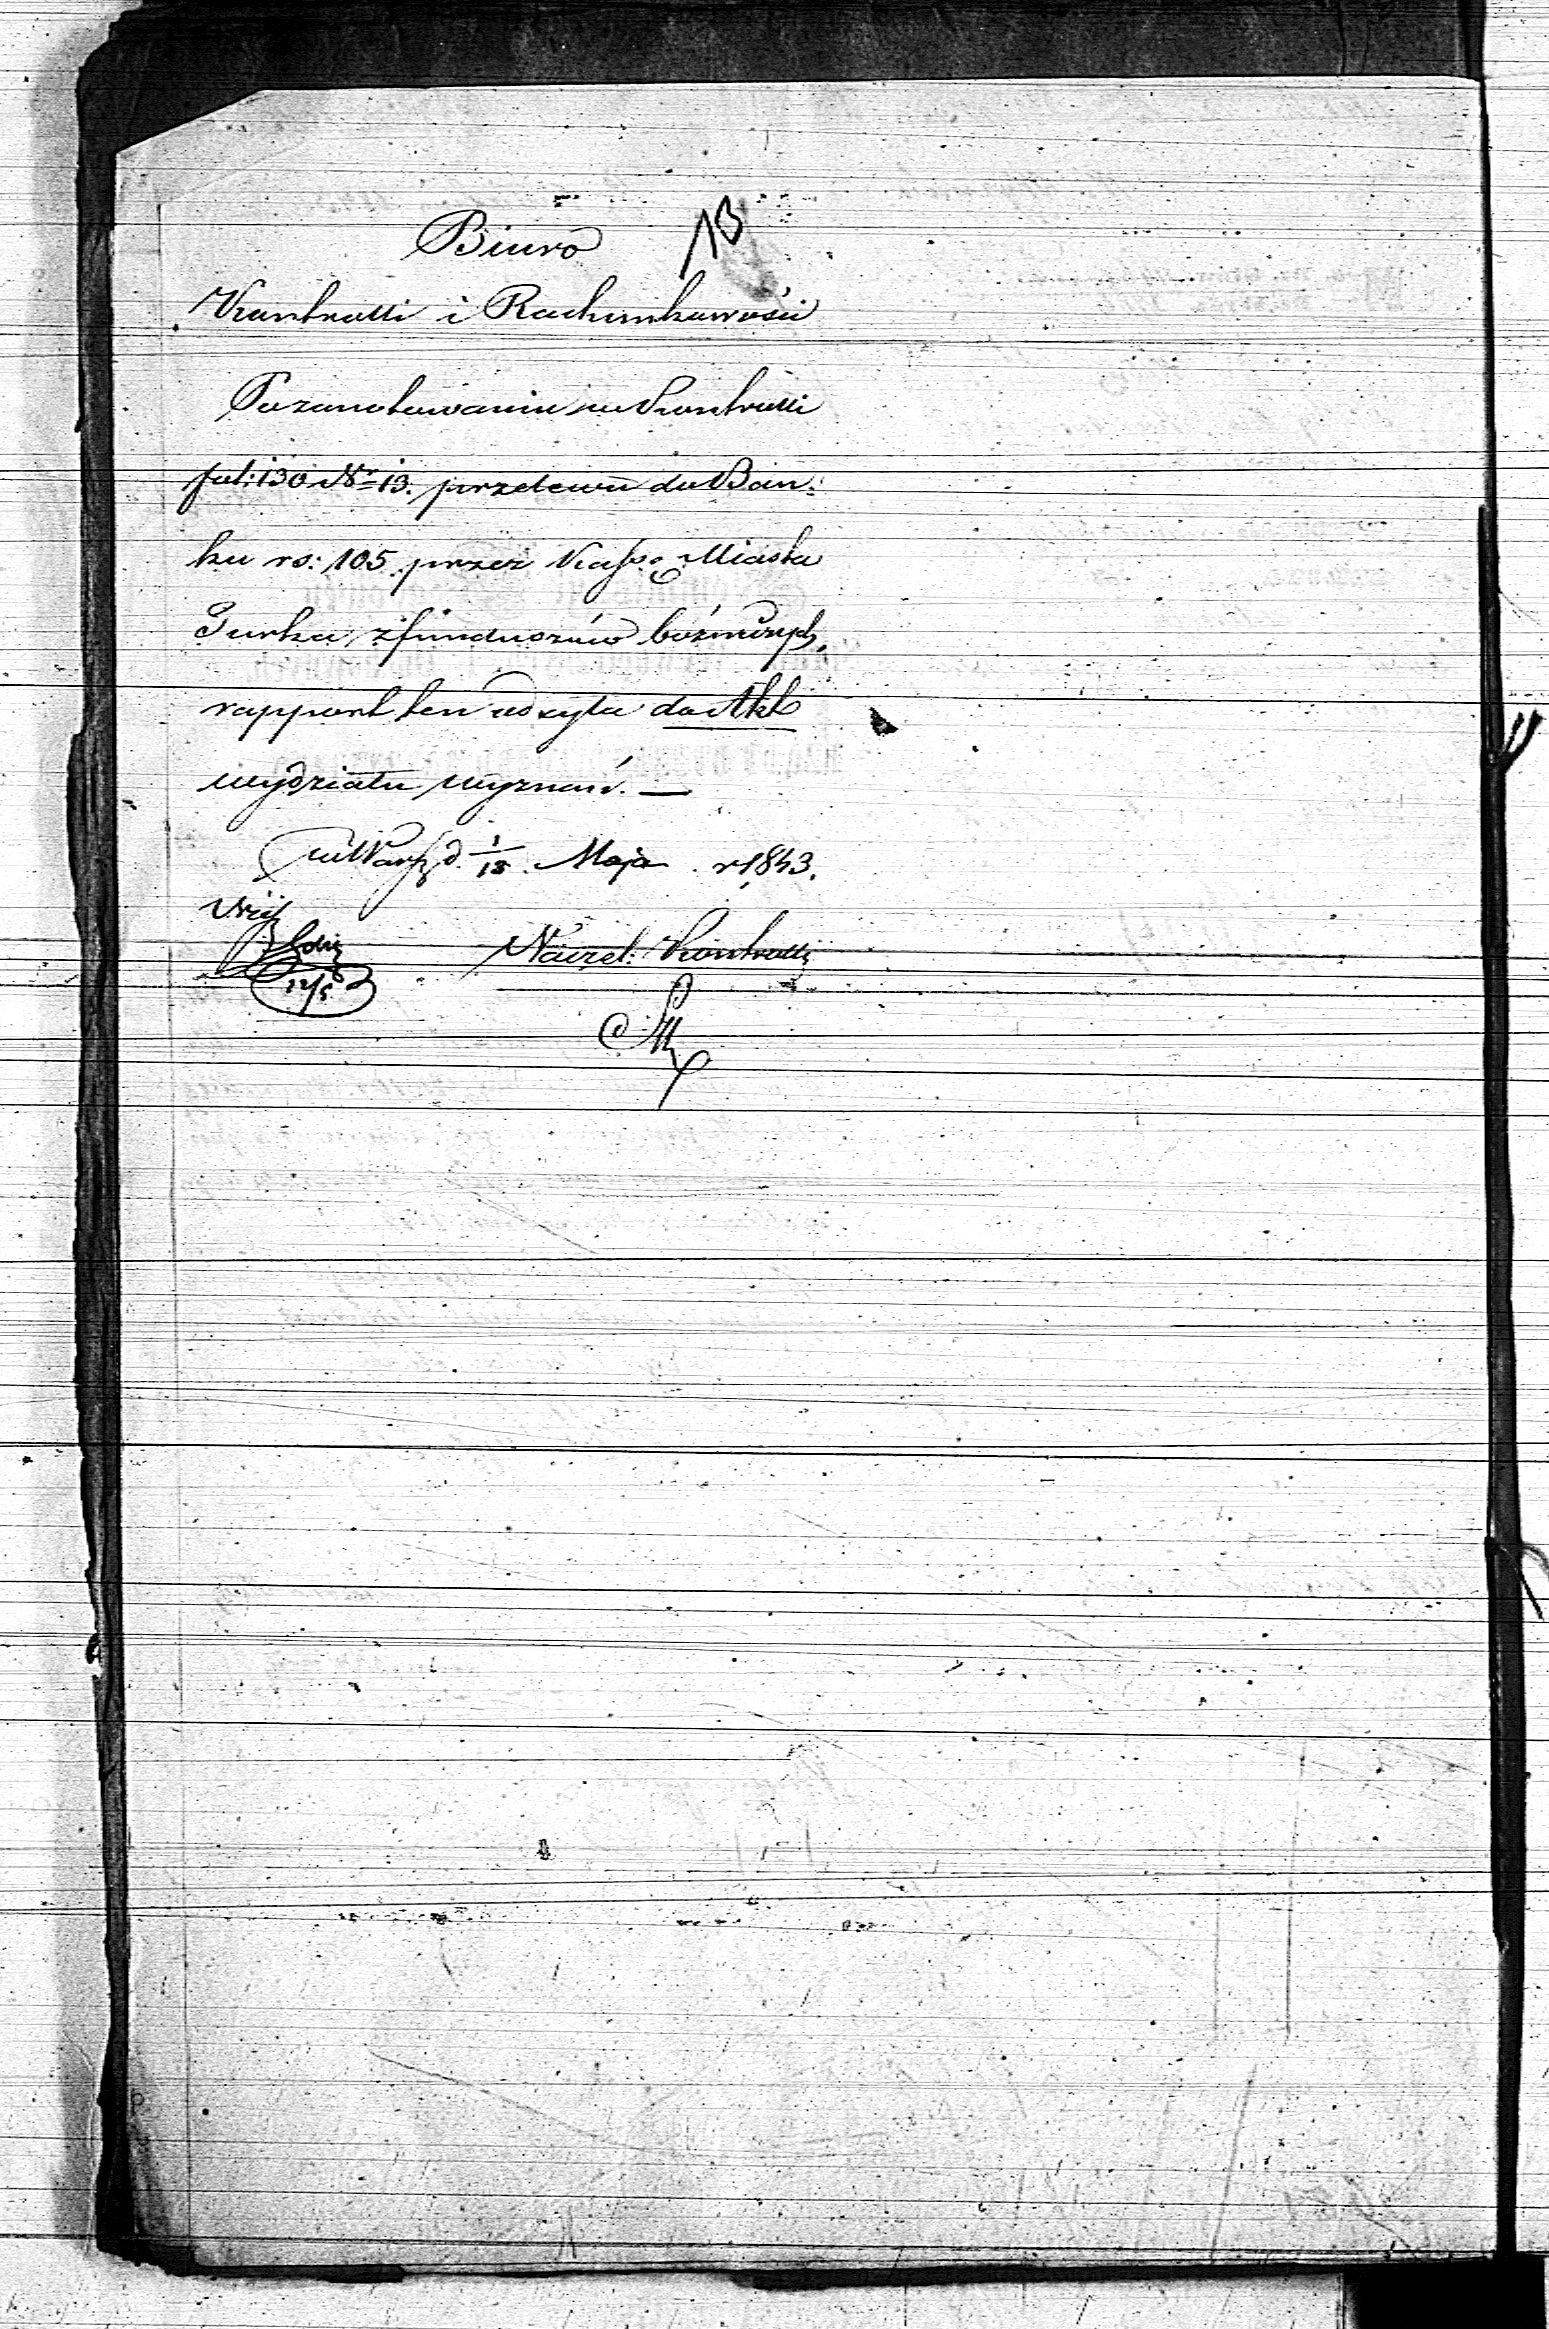 Biuro 13
Kontrolli i Rachunkowości
Po zanotowaniu w Kontrolli
fol: 130 Nr 13. przelewu do Ban:
ku rs: 105. przez Kassę Miasta
Turka, z funduszów bóżniczych,
rapport ten odsyła do Akt
wydziału wyznań. —
w Warsz. d. 1/13. Maja r 1843.
Naczel: Kontrolli
12/5